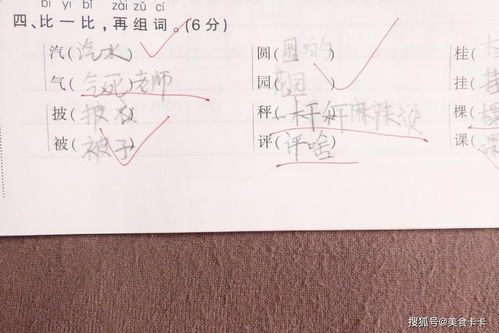 bǐ yi bǐ zài zǔ cí
四、比一比,再组词。(6分)
汽(汽水) 圆(圆的) 桂(
气(气死老师) 园(园) 挂(挂
披(披衣) 秤(一杆秤麻辣烫 棵(棵
被(被子) 评(评啥) 课(课
搜狐号@美食卡卡